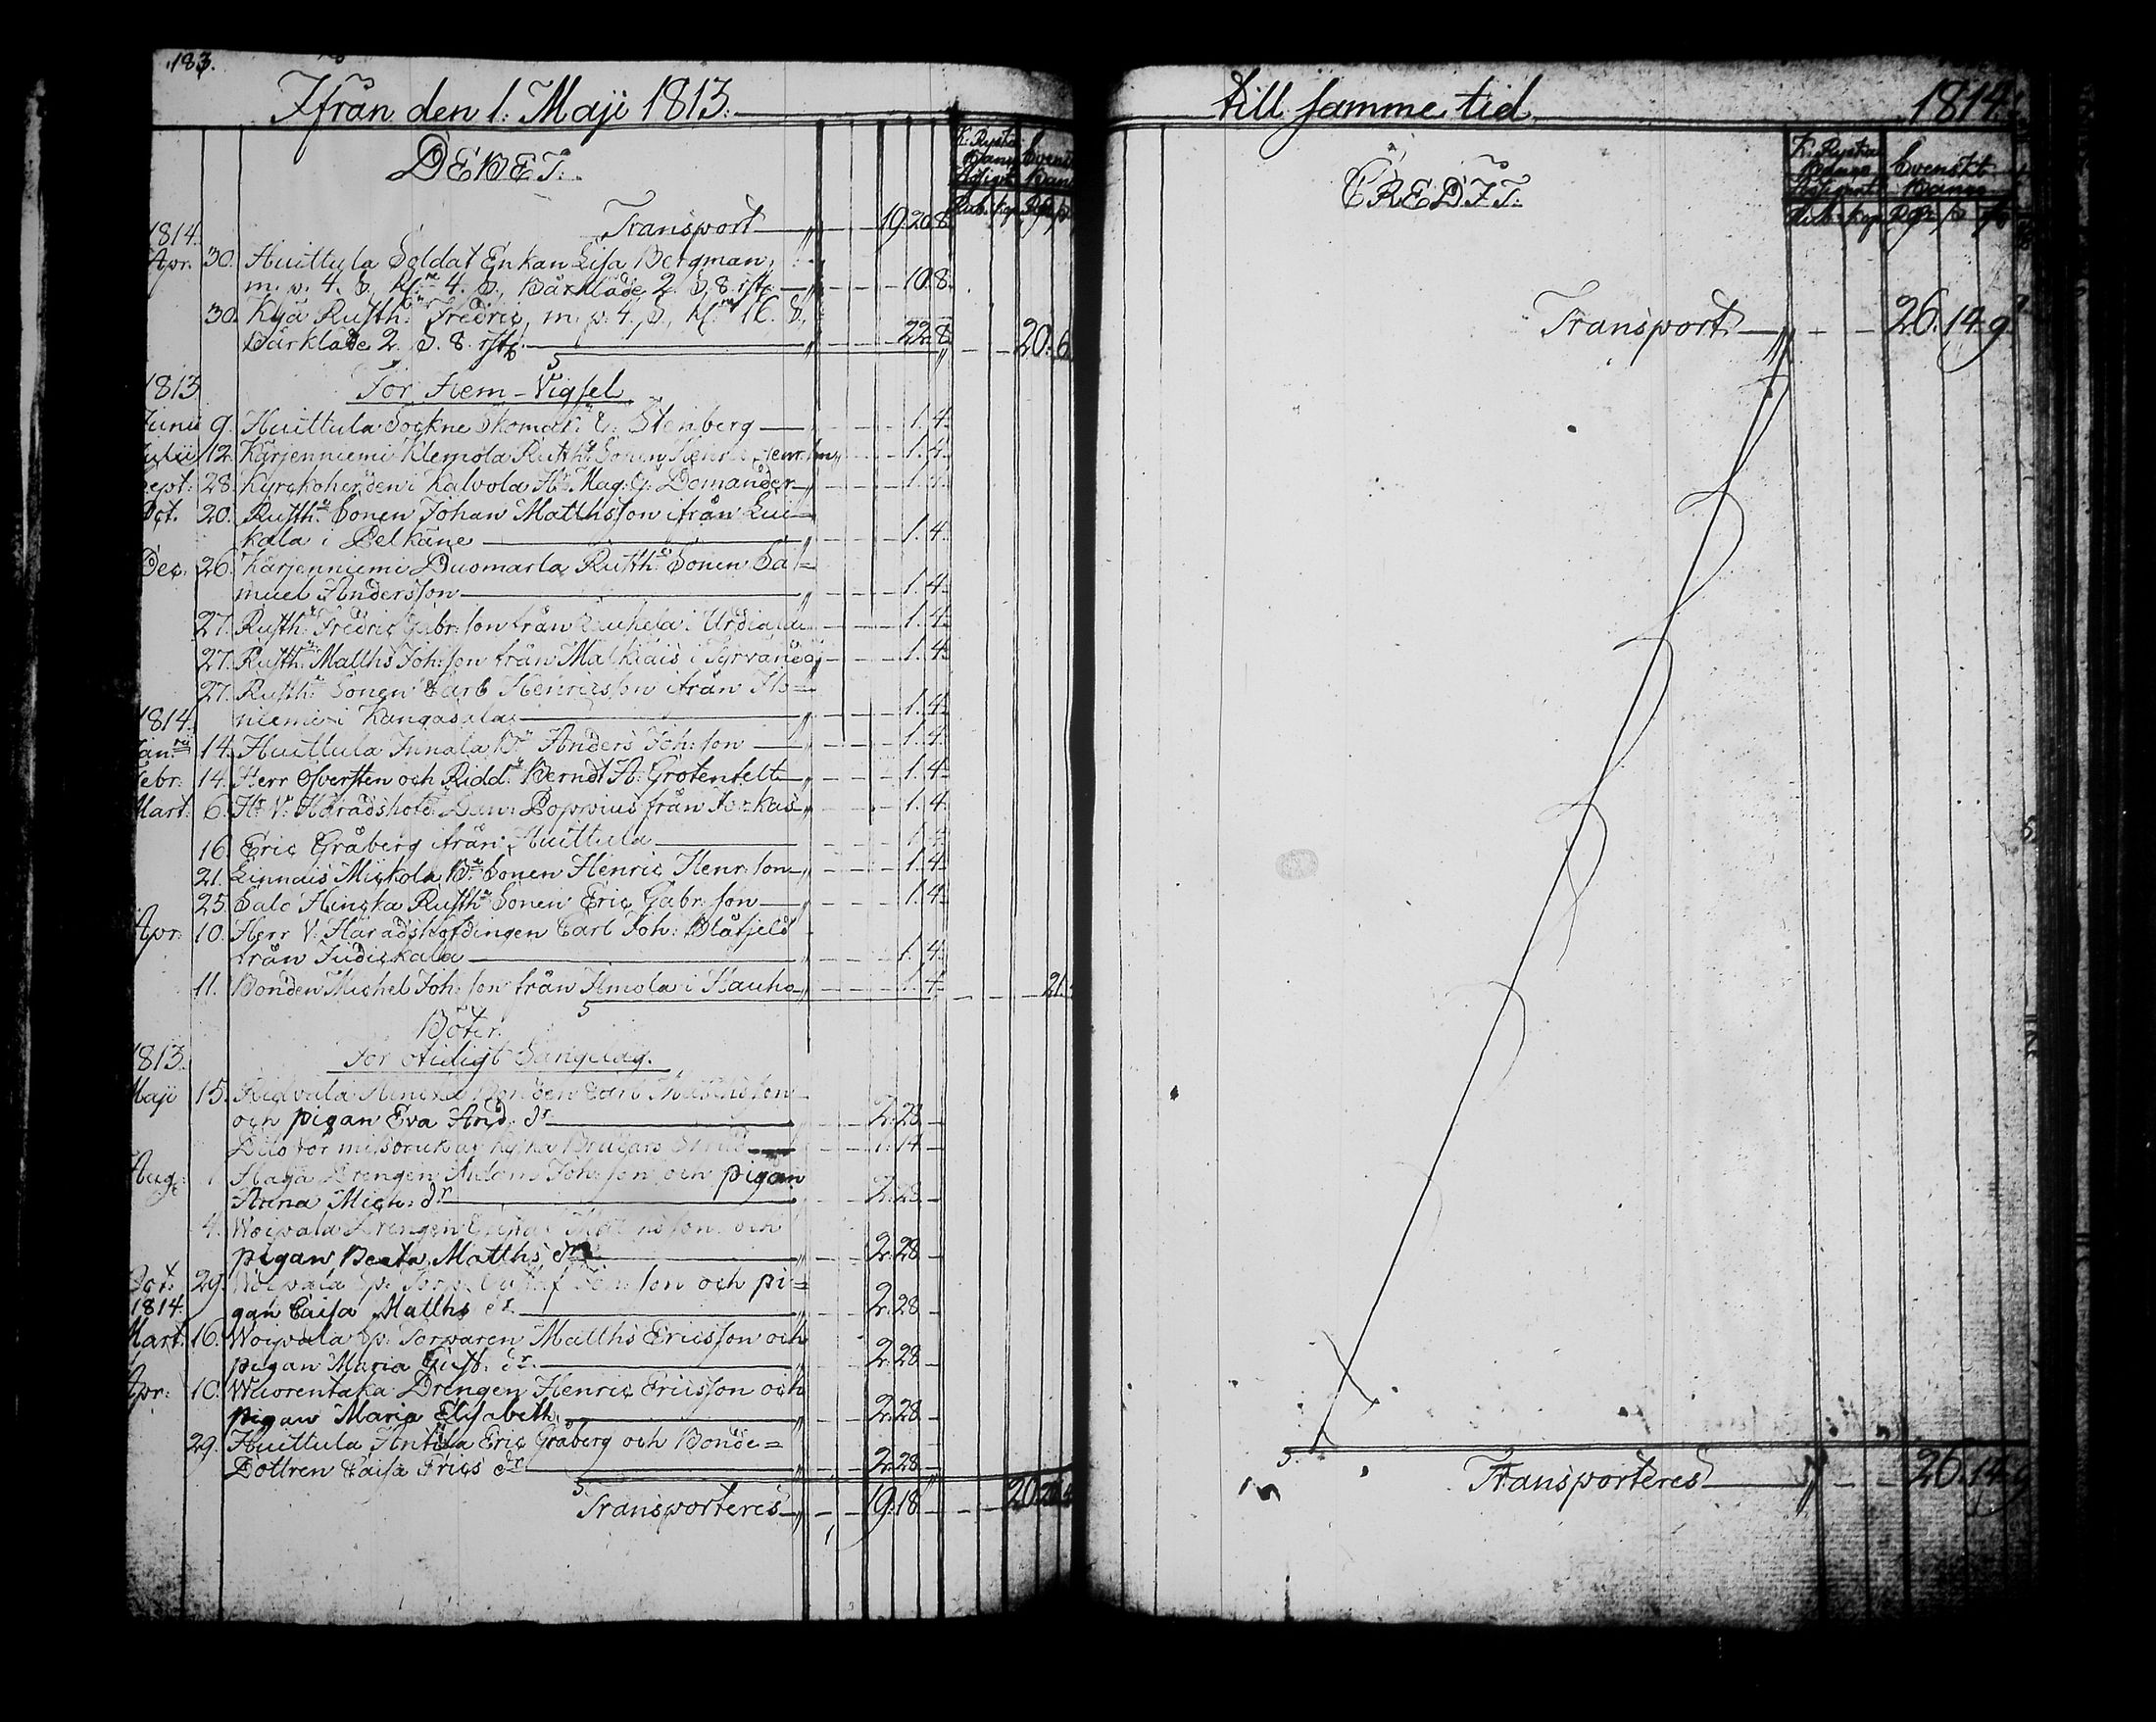 183.
Ifrån den 1. Maji 1813.
DEBET.
K. Ryska Banco Assign. Svenskt Banco
Rub. kop. Rdr
Transport 19. 20. 8.
1814.
Apr. 30. Huittula Soldat Enkan Lisa Bergman,
m. p. 4. s, kl. 4. s, Bårkläde 2. s, 8. rst. 10. 8.
30. Kyä Rusth. Fredric, m. p. 4. s, kl. 16. s,
Bårkläde 2. s. 8. rst. 22. 8. 20. 6
1813
För Hem-Vigsel
Junii 9. Huittula Sockne Skomak. E. Stenberg 1. 4.
Julii 12. Kärjenniemi Klemola Rusth. Sonen Henric Henr.son 1. 4.
Sept. 28. Kyrckoherden i Kalvola Hr Mag. G. Domander 1. 4.
Oct. 20. Rusth. Sonen Johan Mathsson ifrån Lui=
kala i Pelkäne 1. 4.
Dec. 26. Kärjenniemi Duomarla Rusth. Sonen Sa=
muel Andersson 1. 4.
27. Rusth. Fredric Gabr:son från i Urdiala 1. 4.
27. Rusth. Matths Joh:son från Malkiais i Tyrvändö 1. 4.
27. Rusth. Sonen Carl Henricsson ifrån Ho=
niemi i Kangasala 1. 4.
1814.
Jan. 14. Huittula Junala B. Anders Joh:son 1. 4.
Febr. 14. Herr Öfversten och Ridd. Berndt A. Grotenfelt 1. 4.
Mart. 6. Hr V. Häradshöfd. Dan. Poppius från 1. 4.
16. Eric Gråberg ifrån Huittula 1. 4.
21. Linnais Mickola B. Sonen Henric Henr:son 1. 4.
25. Salo Hincka Rusth. Sonen Eric Gabr:son 1. 4.
Apr. 10. Herr V. Häradshöfdingen Carl Joh: Blåfield
från Judickala 1. 4.
11. Bonden Michel Joh:son från Hmola i Hauho 1. 4. 21.
Böter.
För otidigt Sängelag.
1813.
Maji 15. Hincka Bonden Carl Mathsson
och pigan Eva And. dr 2. 28.
Dito för missbruk av 1. 14.
Aug. 1. Haga Drengen Adam Joh:son och pigan
Anna Mich. dr 2. 28.
4. Woipala Drengen och
pigan Beata Matths dr 2. 28.
Oct. 29. Woipala Sp. Torp. Gustaf Joh:son och pi=
1814. gan Caisa Matths dr 2. 28
Mart. 16. Woipala Sp. Torparen Matths Ericsson och
pigan Maria Gust. dr. 2. 28
Apr. 10. Wuorentaka Drengen Henric Ericsson och
pigan Maria Elisabeth 2. 28
29. Huittula Anttila Eric Gråberg och Bonde=
Dottren Caisa Erics dr 2. 28
Transporteres 19. 18.
till samme tid 1814.
CREDIT.
K. Ryska Banco Assignat. Svenskt Banco
Rub. kop. Rdr s rst
Transport 26. 14. 9.
Transporteres 26. 14. 9